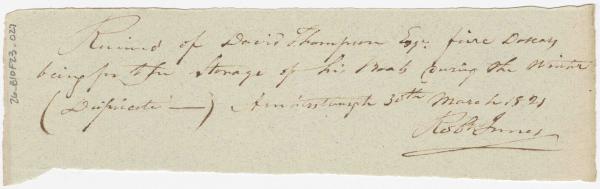 Received of David Thompson Esqr. five Dollars
being for the Storage of his Boats during the Winter
(Duplicate —) Amherstburgh 30th March 1821
Robt Innes
26-B10F23-027